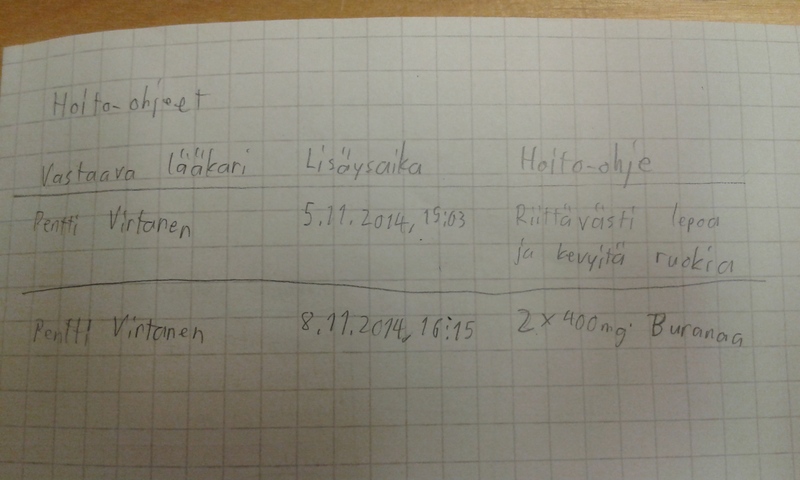 Hoito-ohjeet
Vastaava lääkari Lisäysaika Hoito-ohje
Pentti Virtanen 5.11.2014, 15:03 Riittävästi lepoa
ja kevyitä ruokia
Pentti Virtanen 8.11.2014, 16:15 2x400mg Buranaa